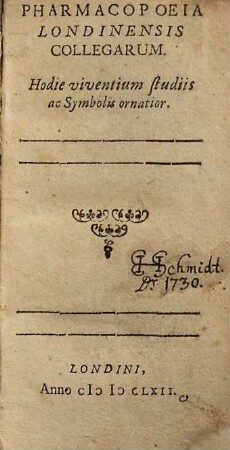 PHARMACOPOEIA
LONDINENSIS
COLLEGARUM.
Hodie viventium studiis
ac Symbolis ornatior.
Schmidt.
1730.
LONDINI,
Anno cIɔ Iɔ cLXII.